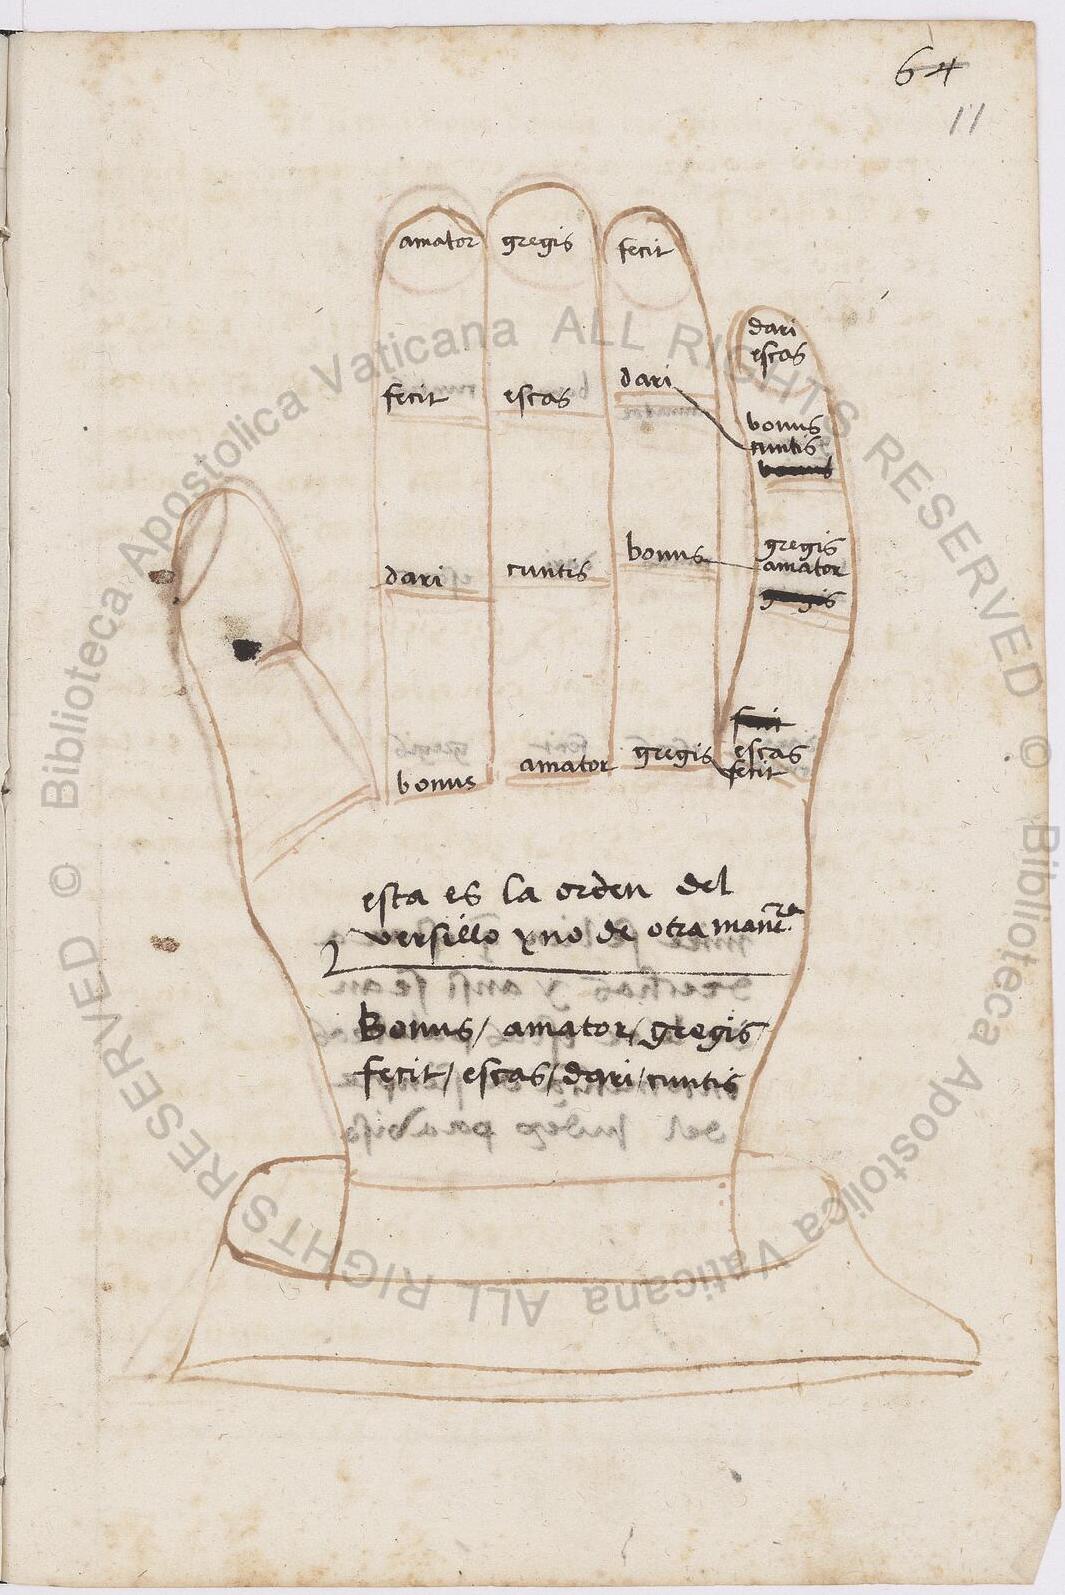 64
11
amator gregis fecit
dari
escas
fecit escas dari
bonus
cuntis
bonus
dari cuntis bonus
gregis
amator
gregis
bonus amator gregis
escas
fecit
esta es la orden del
versillo y no de otra maner̃a
Bonus / amator / gregis
fecit / escas / dari / cuntis
© Biblioteca Apostolica Vaticana ALL RIGHTS RESERVED
© Biblioteca Apostolica Vaticana ALL RIGHTS RESERVED